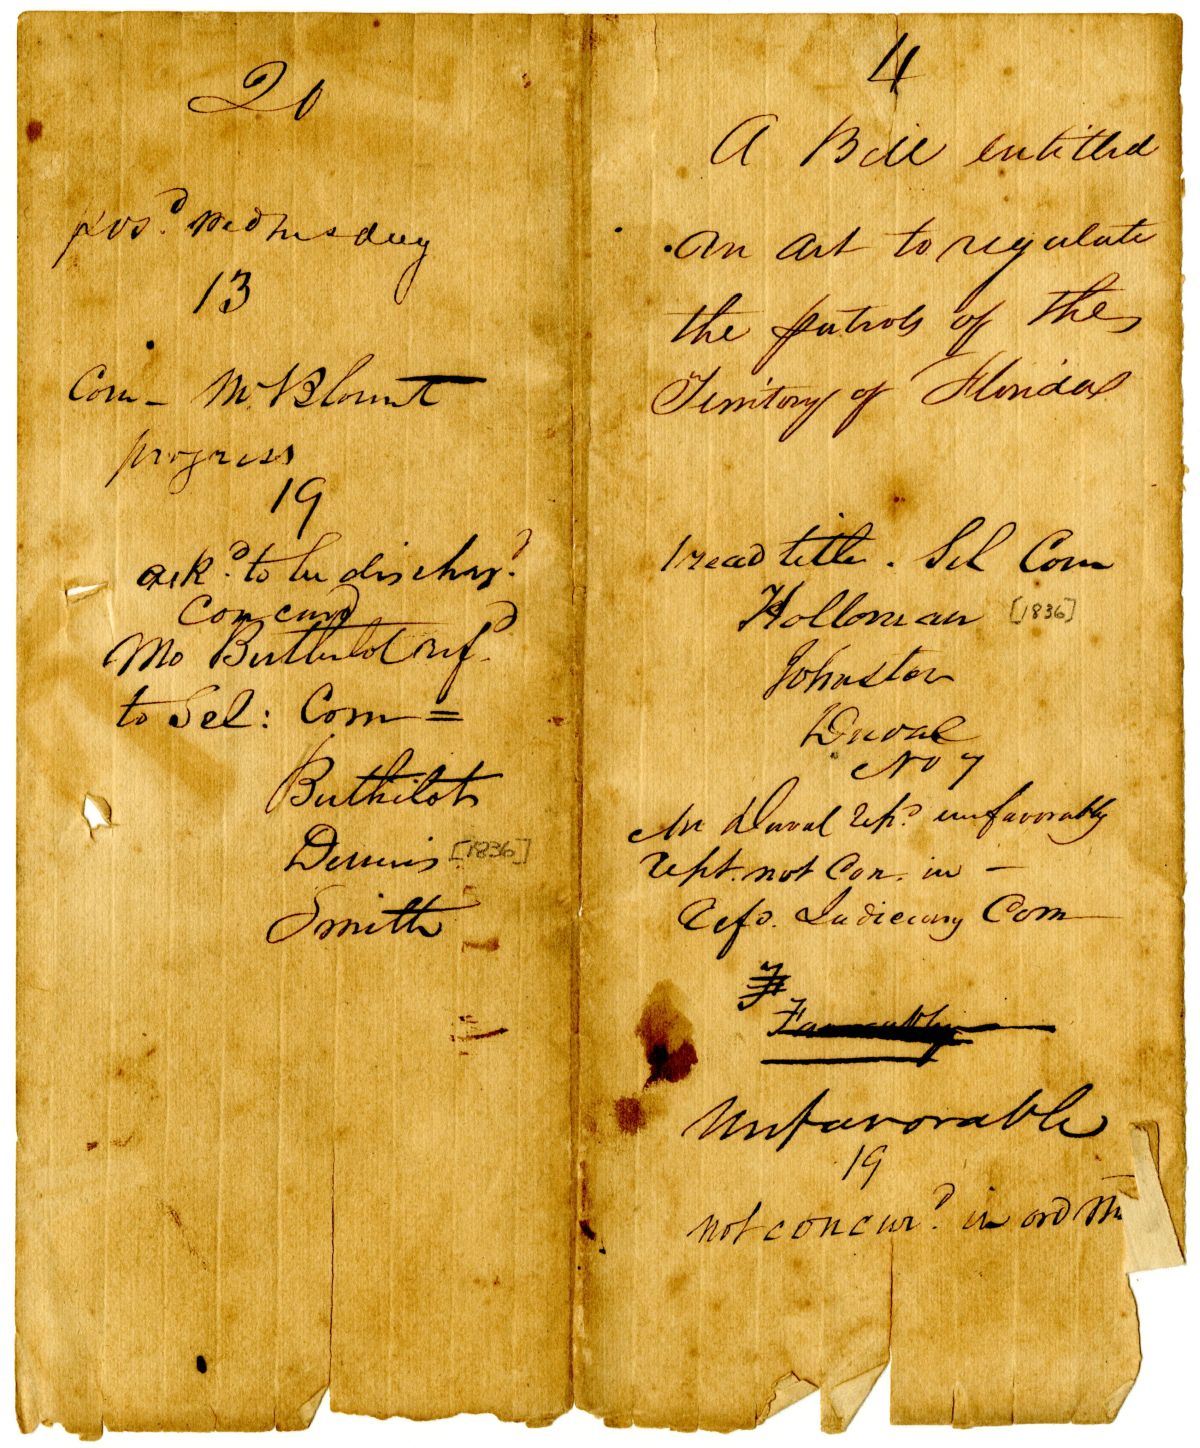 20
pos.d Wednesday
13
Com - Mr Blount
progress
19
ask.d to be dischar.d
Concurd
Mo Berthelot ref.d
to Sel: Com =
Berthelot
Dennis [1836]
Smith
4
A Bill entitled
An act to regulate
the patrols of the
Territory of Florida
1 read title. Sel Com
Holloman [1836]
Johnston
Duval
No 7
Mr Duval rep.d unfavorably
rept. not con. in -
Refd. Judiciary Com
F
Favorably
Unfavorable
19
not concur.d in ord